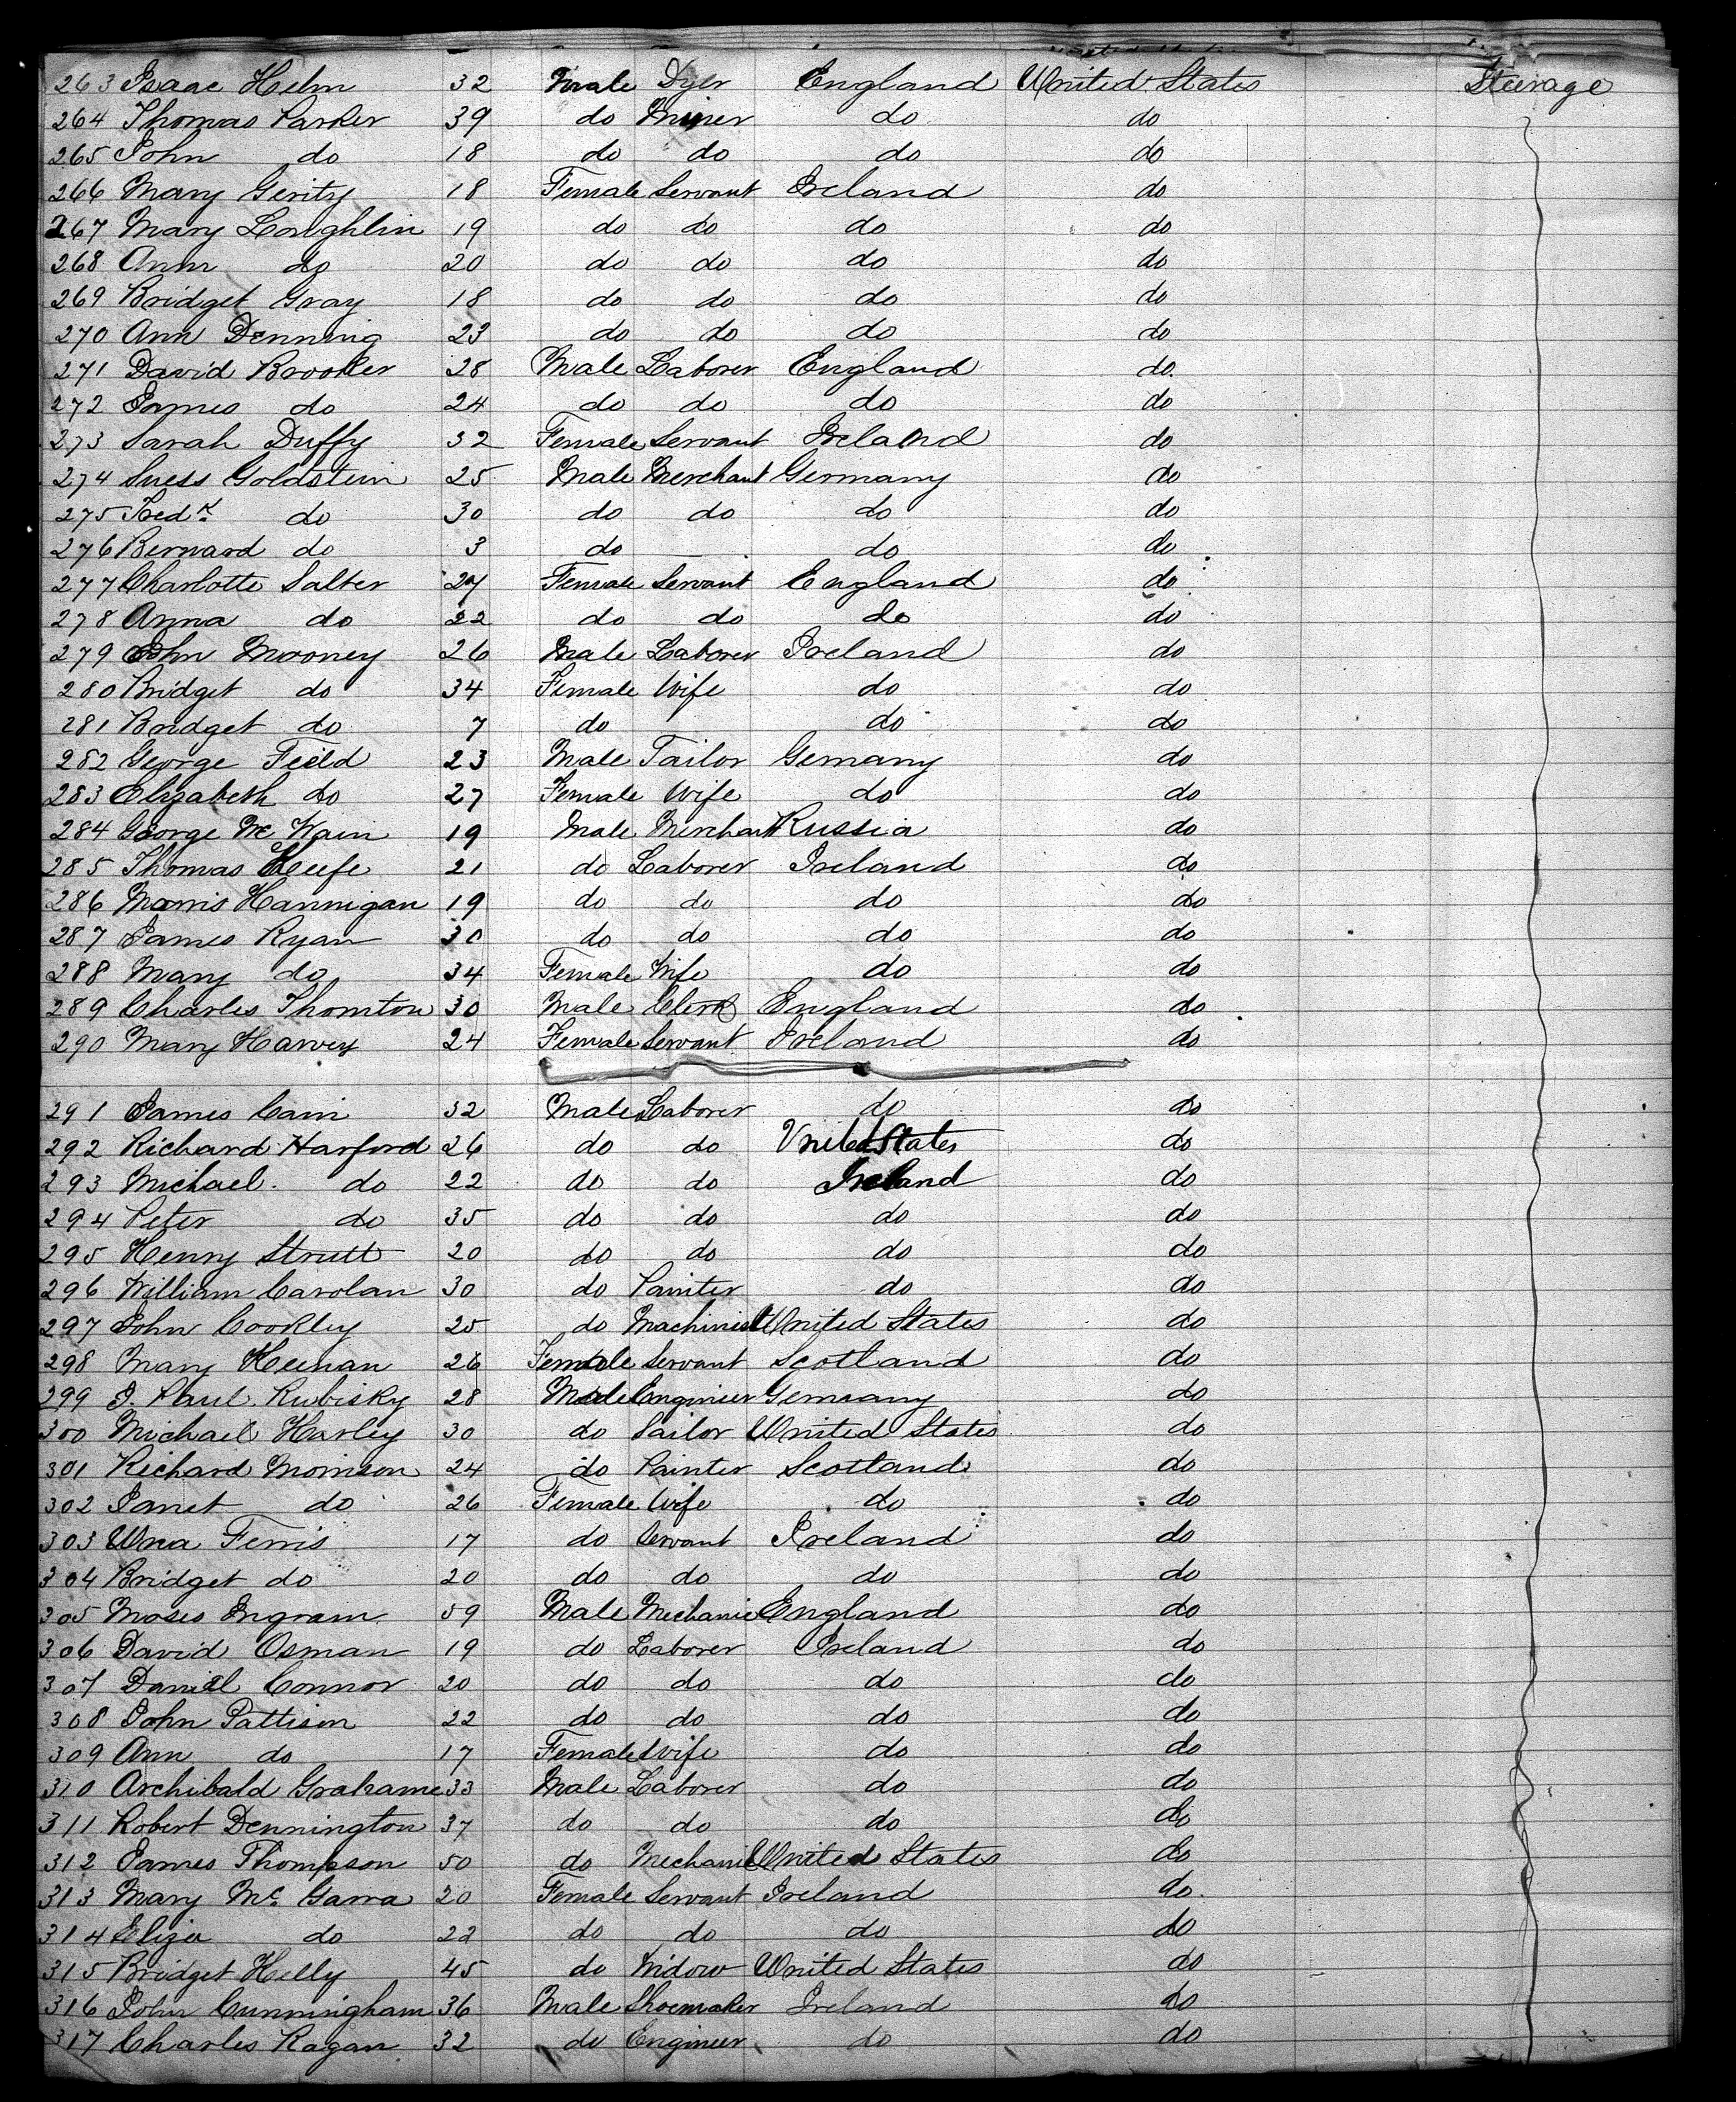 263 Isaac Helm 32 Male Dyer England United States Steerage
264 Thomas Parker 39 do Miner do do
265 John do 18 do do do do
266 Mary Gerity 18 Female Servant Ireland do
267 Mary Loughlin 19 do do do do
268 Ann do 20 do do do do
269 Bridget Gray 18 do do do do
270 Ann Denning 23 do do do do
271 David Brooker 28 Male Laborer England do
272 James do 24 do do do do
273 Sarah Duffy 32 Female Servant Ireland do
274 Suess Goldstein 25 Male Merchant Germany do
275 Fredk do 30 do do do do
276 Bernard do 3 do do do
277 Charlotte Salter 24 Female Servant England do
278 Anna do 22 do do do do
279 John Mooney 26 Male Laborer Ireland do
280 Bridget do 34 Female Wife do do
281 Bridget do 7 do do do
282 George Feild 23 Male Tailor Gemany do
283 Elizabeth do 27 Female Wife do do
284 George Mc Kain 19 Male Merchant Russia do
285 Thomas Keefe 21 do Laborer Ireland do
286 Morris Hannigan 19 do do do do
287 James Ryan 30 do do do do
288 Mary do 34 Female Wife do do
289 Charles Thornton 30 Male Clerk England do
290 Mary Harvey 24 Female Servant Ireland do
291 James Cain 32 Male Laborer do do
292 Richard Harford 26 do do United States do
293 Michael do 22 do do Ireland do
294 Peter do 35 do do do do
295 Henry Strutt 20 do do do do
296 William Carolan 30 do Painter do do
297 John Cookley 25 do Machinist United States do
298 Mary Keenan 26 Female Servant Scotland do
299 J. Paul Rubisky 28 Male Engineer Germany do
300 Michael Harley 30 do Sailor United States do
301 Richard Morrison 24 do Painter Scotland do
302 Janet do 26 Female Wife do do
303 Una Ferris 17 do Servant Ireland do
304 Bridget do 20 do do do do
305 Moses Ingram 59 Male Mechanic England do
306 David Osman 19 do Laborer Ireland do
307 Daniel Connor 20 do do do do
308 John Pattison 22 do do do do
309 Ann do 17 Female Wife do do
310 Archibald Grahame 33 Male Laborer do do
311 Robert Dennington 37 do do do do
312 James Thompson 50 do Mechanic United States do
313 Mary Mc Garra 20 Female Servant Ireland do
314 Eliza do 22 do do do do
315 Bridget Kelly 45 do Widow United States do
316 John Cunningham 36 Male Shoemaker Ireland do
317 Charles Ragan 32 do Engineer do do